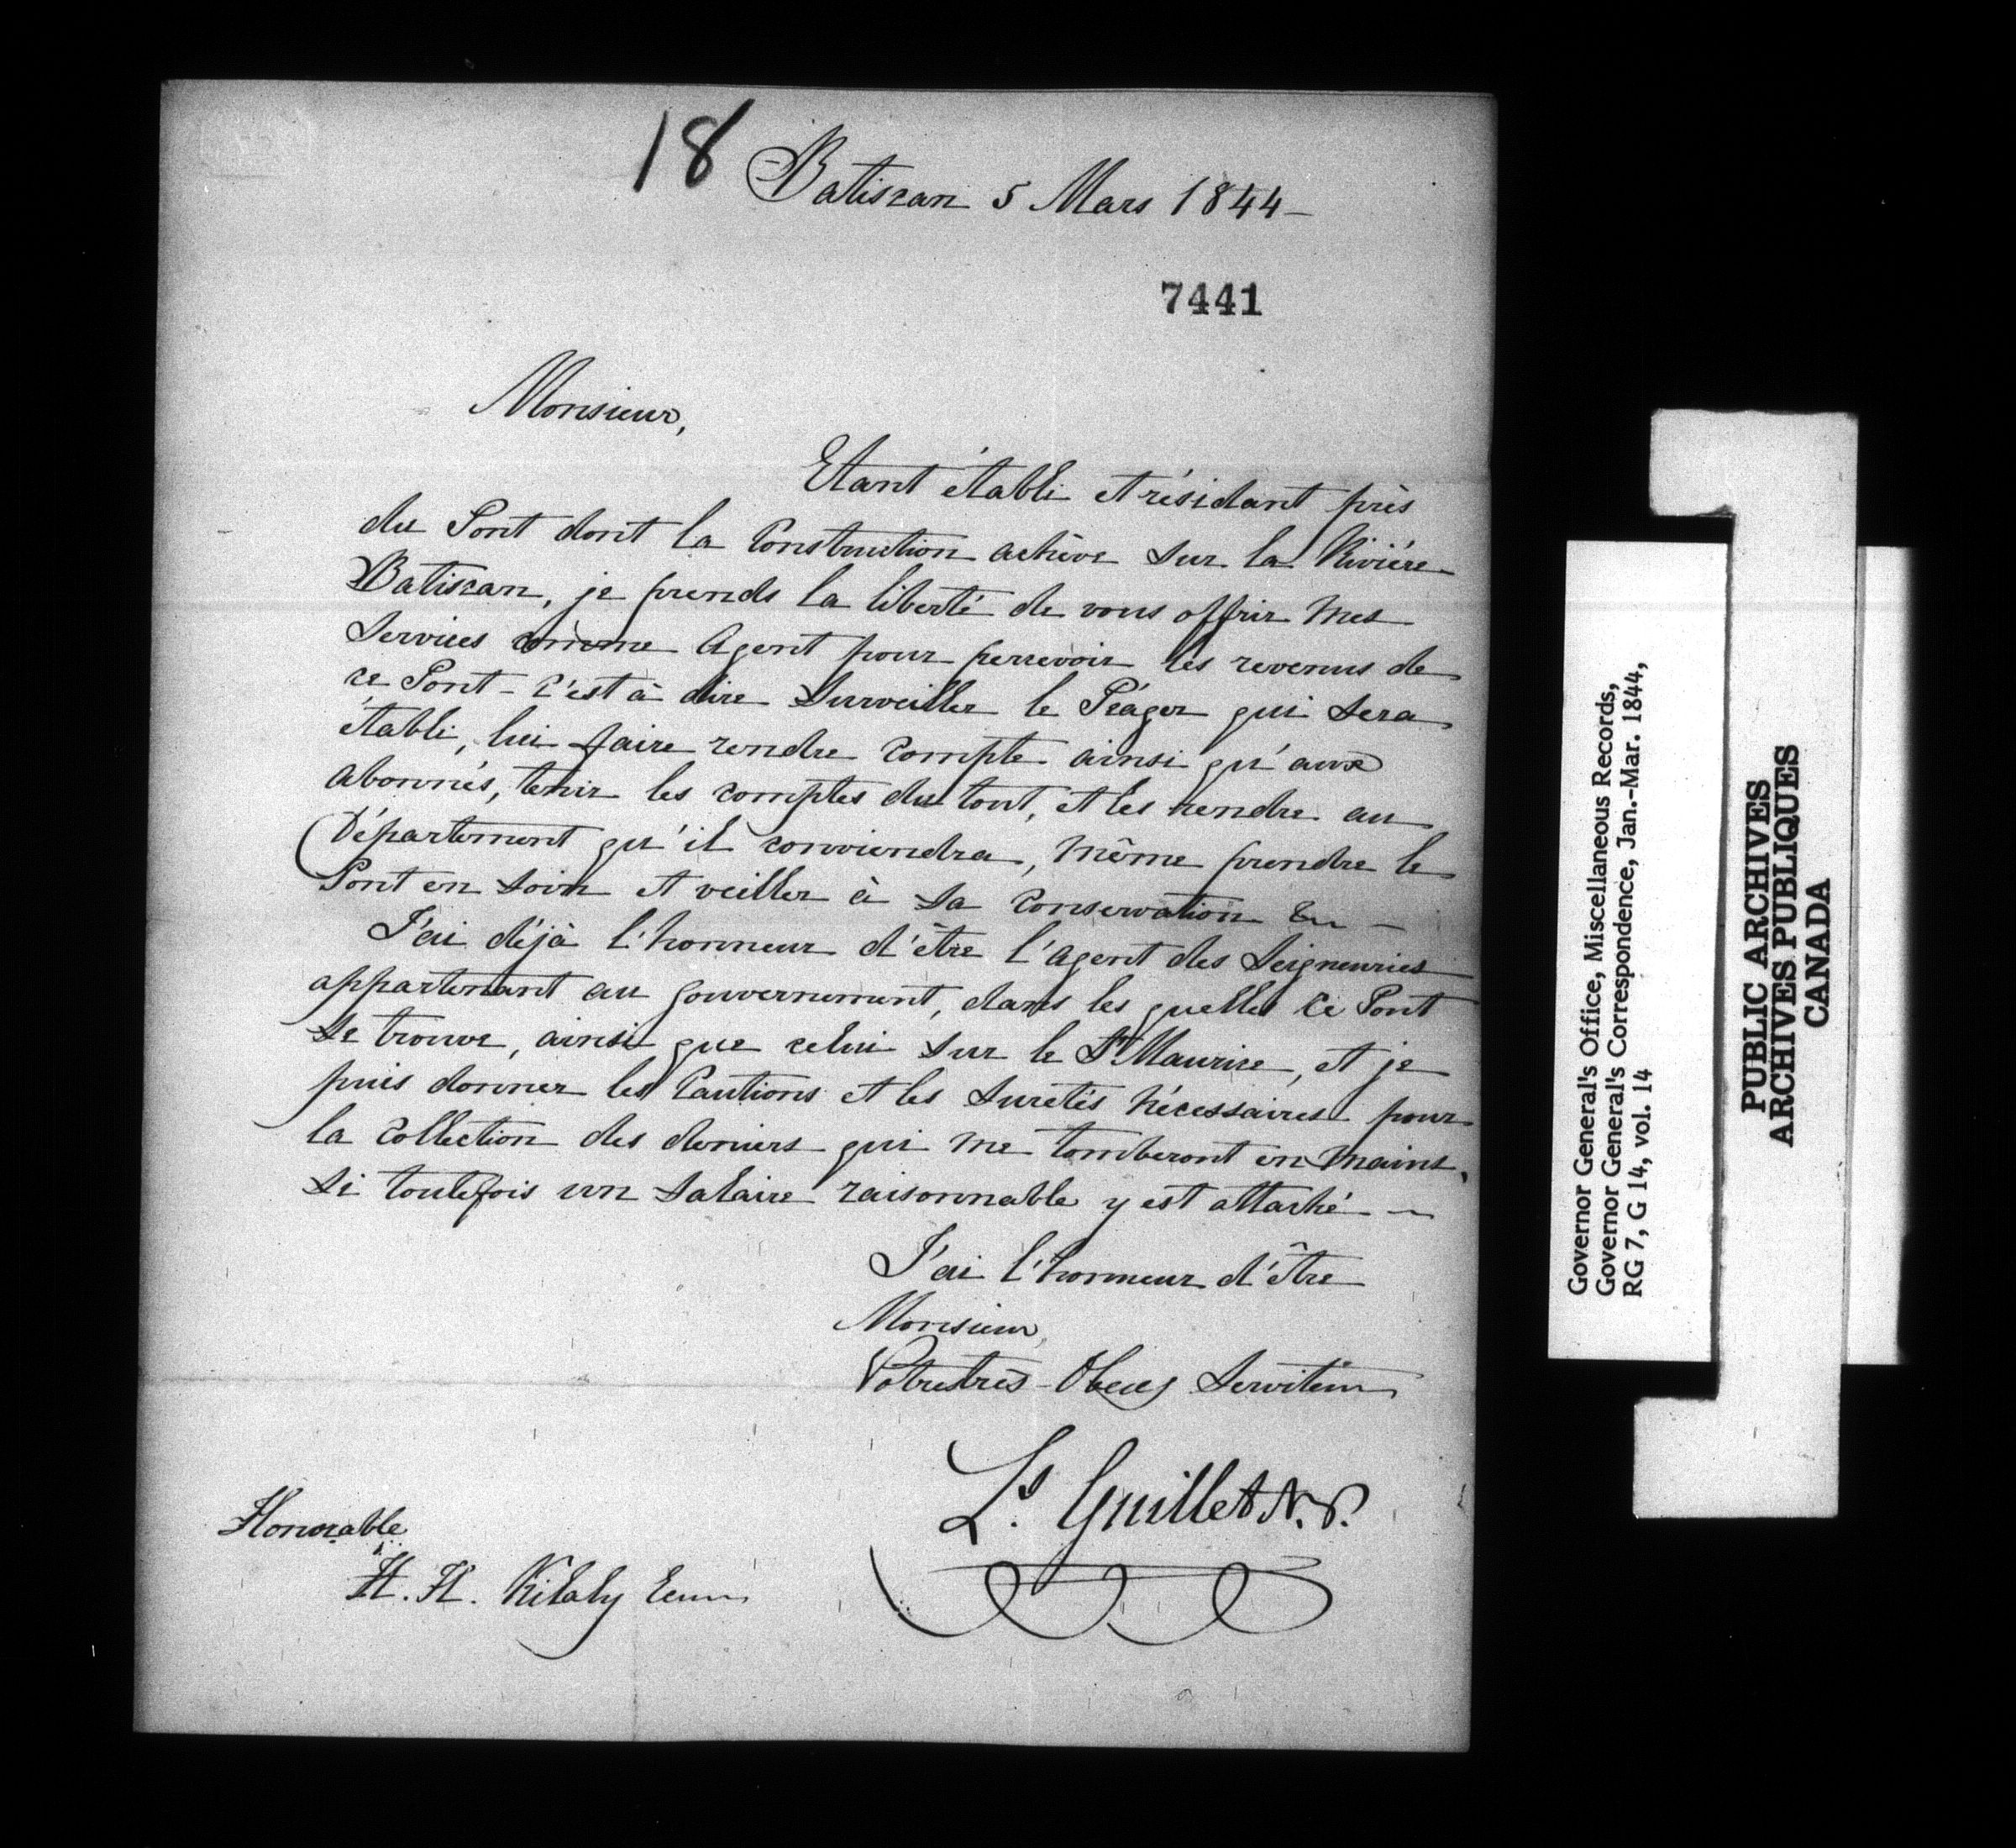 18 Batiscan 5 Mars 1844 –
7441
Monsieur,
Etant établi et résidant près
du Pont dont la Construction achève sur la Rivière
Batiscan, je prends la liberté de vous offrir mes
Services comme Agent pour percevoir les revenus de
ce Pont – C'est à dire Surveiller le Péager qui Sera
établi, lui faire rendre compte ainsi qu'aux
abonnés, tenir les comptes du tout, et les rendre au
Département qu'il conviendra, même prendre le
Pont en soin et veiller à sa Conservation &c –
J'ai déjà l'honneur d'être l'Agent des Seigneuries
appartenant au Gouvernement, dans les quelles ce Pont
se trouve, ainsi que celui sur le St Maurice, et je
puis donner les Cautions et les Suretés nécessaires pour
la Collection des deniers qui me tomberont en mains,
Si toutefois un Salaire raisonnable y est attaché –
J'ai l'honneur d'être
Monsieur,
Votre très Obert Serviteur
Ls. Guillet N.P.
Honorable
H. H. Kilaly Ecuier
Governor General's Office, Miscellaneous Records,
Governor General's Correspondence, Jan.-Mar. 1844,
RG 7, G 14, vol. 14
PUBLIC ARCHIVES
ARCHIVES PUBLIQUES
CANADA